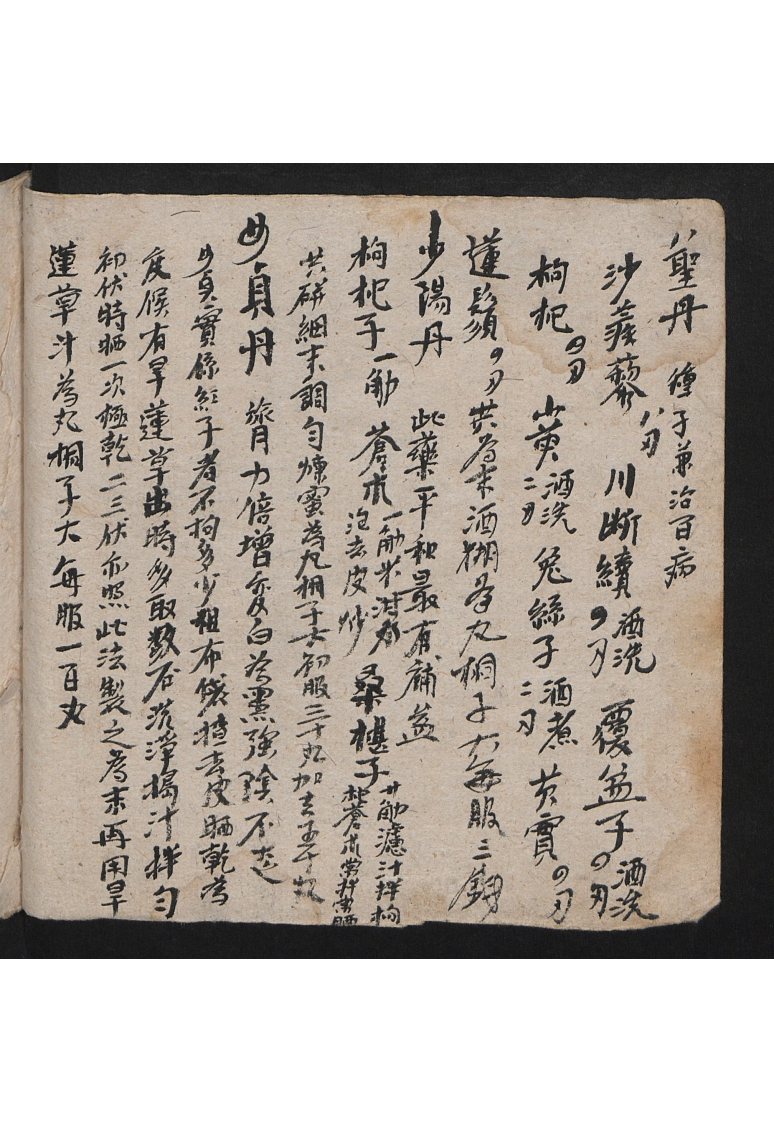 八聖丹 種子兼治百病
沙蒺藜 八刃 川断續 酒洗 覆盆子 酒洗
枸杞 山萸 酒洗 二刃 兔絲子 酒煮 二刃 芡實
蓮鬚 共為末酒糊為丸桐子大每服三錢
少陽丹 此藥平和最有補益
枸杞子一觔 蒼朮 一觔米泔 泡去皮炒 桑椹子 廿觔濾汁拌枸杞蒼朮常拌常晒
共硏細末調勻煉蜜為丸桐子大初服三十丸加至五十丸
女貞丹 膂力倍增变白為黑強陰不走
女貞實係紅子者不拘多少粗布袋擦去皮晒乾為
度候有旱蓮草出時多取数石洗淨搗汁拌勻
初伏時晒一次極乾二三伏亦照此法製之為末再用旱
蓮草汁為丸桐子大每服一百丸